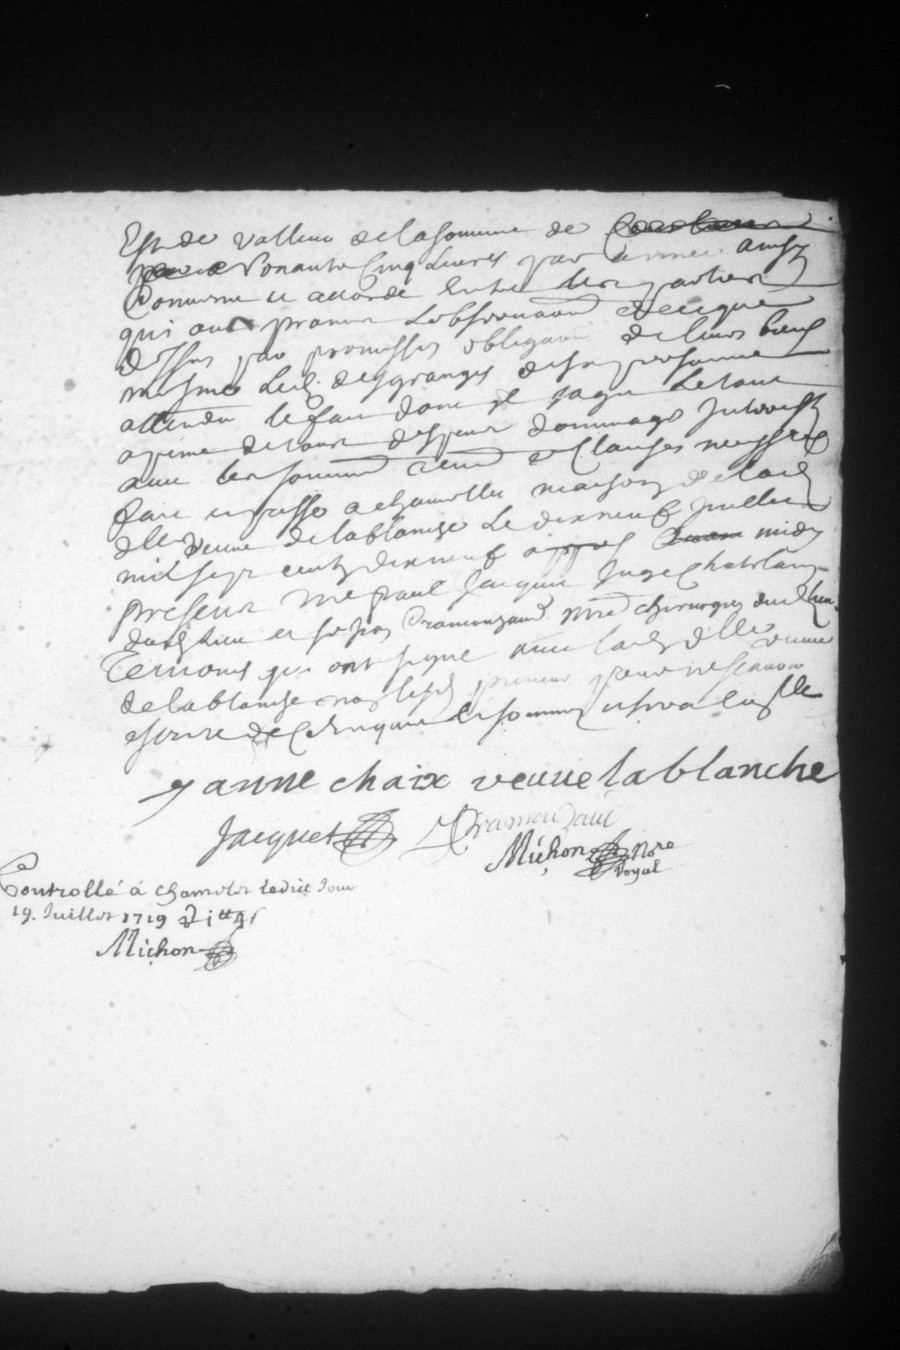 Est de valleur de la somme de
nonante cinq livres par année ainsy
convenu et accordé entre les parties
qui ont promis l'observation de ce que
dessus par promesses obligations de leurs biens
mesme led. desgranges de sa personne
attendu le fait dont il sagit le tout
a peine de tous despens dommages interests
avec les soumons renons et clauses necessres
fait et passé a chamelet maison de lad.
dlle veuve de lablanche le dixneuf juillet
mil sept cents dixneuf appres midy
present me paul jacquet juge chatelain
dud. lieu et Dramouzaud me chirurgien dud. lieu
temoins qui ont signé avec lad. dlle veuve
de lablanche non led. preneur pour ne scavoir
escrire de ce enquis et sommé
anne chaix veuve lablanche
Jacquet Dramouzaud
Michon Nore
Royal
Controllé á chamelet ledit jour
19. Juillet 1719
Michon